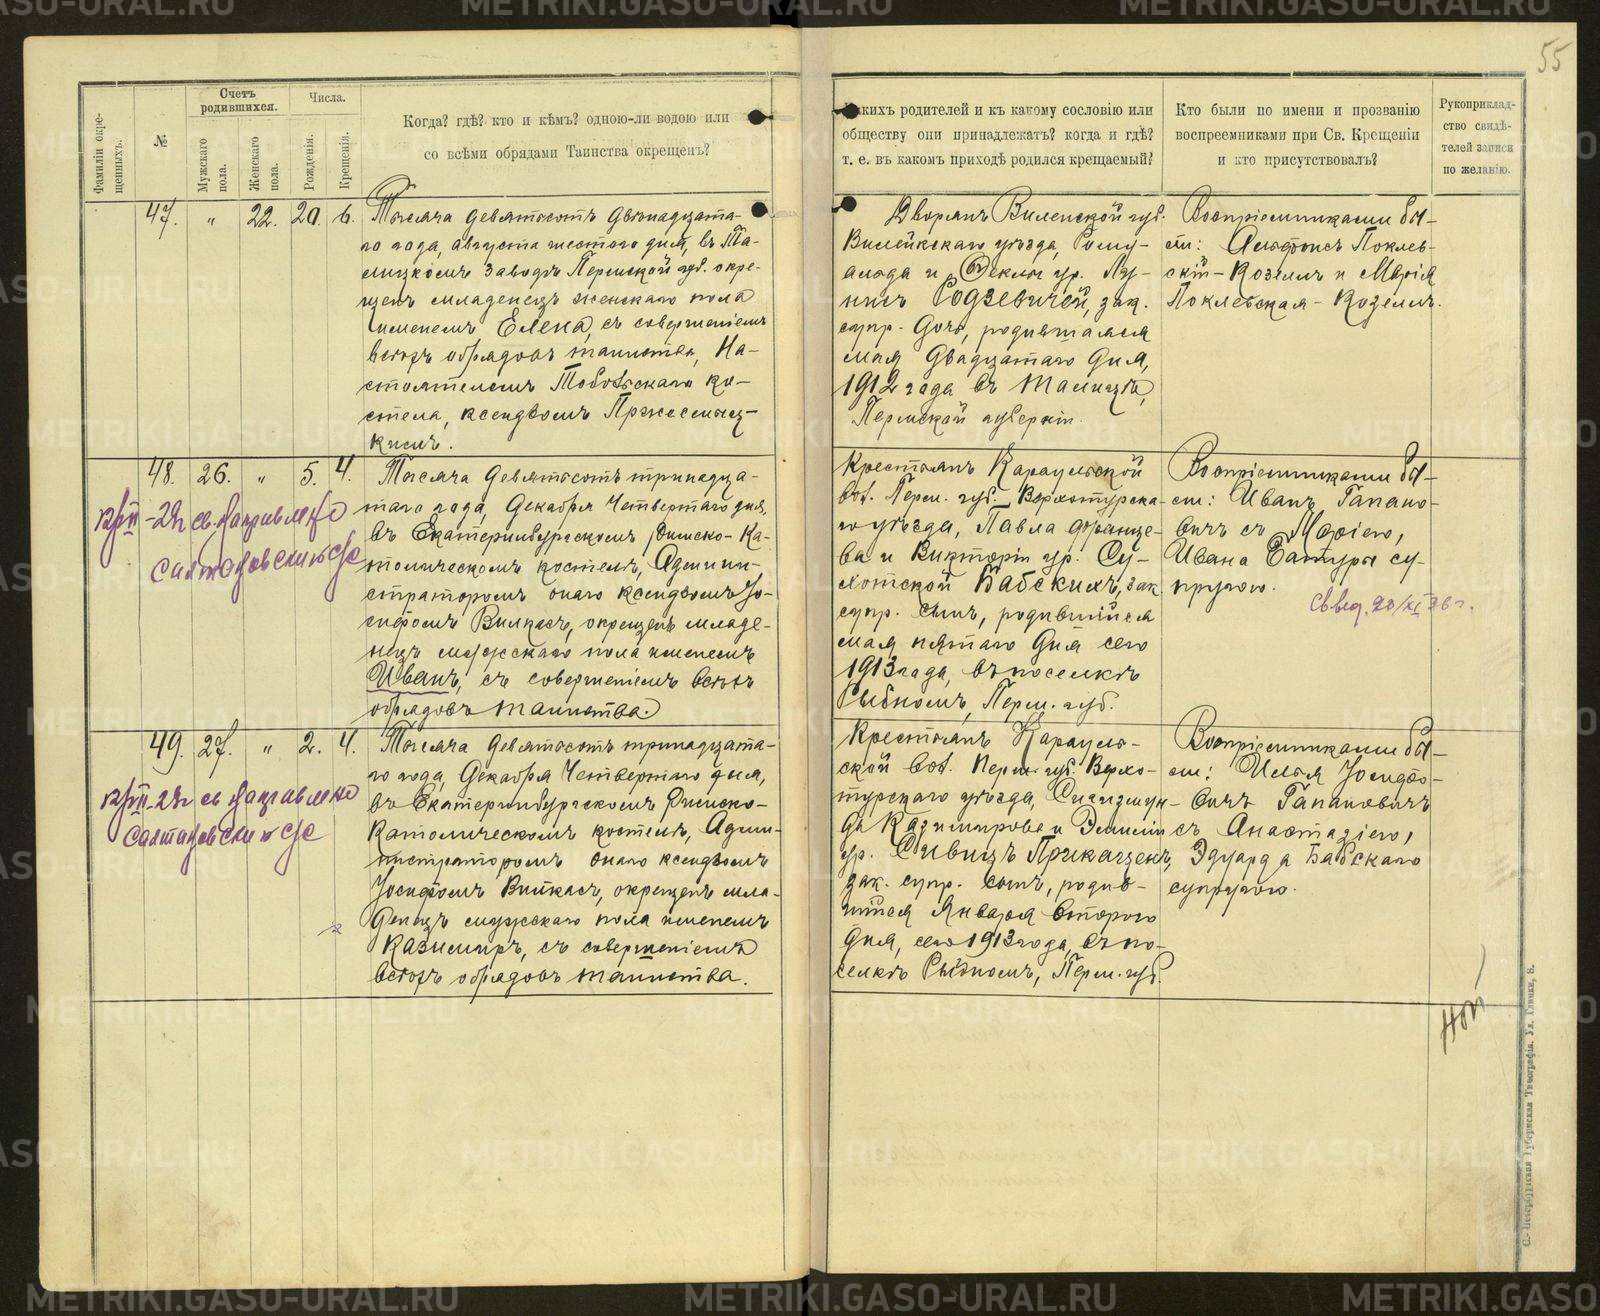 METRIKI.GASO-URAL.RU
55
Фамиліи окрещенныхъ.
№
Счетъ родившихся.
Мужскаго пола.
Женскаго пола.
Числа.
Рожденія.
Крещенія.
Когда? гдѣ? кто и кѣмъ? одною-ли водою или
со всѣми обрядами Таинства окрещенъ?
Какихъ родителей и къ какому сословію или
обществу они принадлежатъ? когда и гдѣ?
т. е. въ какомъ приходѣ родился крещаемый?
Кто были по имени и прозванію
воспреемниками при Св. Крещеніи
и кто присутствовалъ?
Рукоприклад-
ство свидѣ-
телей записи
по желанію.
47. " 22. 20. 6.
Тысяча девятьсотъ двѣнадцата-
го года, августа шестого дня, въ Та-
лицкомъ заводѣ Пермской губ. окре-
щенъ младенецъ женскаго пола
именемъ Елена, съ совершеніемъ
всѣхъ обрядовъ таинства, На-
стоятелемъ Тобольскаго ко-
стела, ксендзомъ Пржесмыц-
кимъ.
Дворянъ Виленской губ.
Вилейскаго уѣзда, Рому-
альда и Ѳеклы ур. Лу-
нич Родзевичей, зак.
супр. дочь, родившаяся
мая двадцатаго дня,
1912 года въ Талицкѣ,
Пермской губерніи.
Воспріемниками бы-
ли: Альфонсъ Поклев-
скій-Козеллъ и Марія
Поклевская-Козеллъ.
48. 26. " 5. 4.
Тысяча девятьсотъ тринадца-
таго года, Декабря Четвертаго дня,
въ Екатеринбургскомъ Римско-Ка-
толическомъ костелѣ, Админи-
страторомъ онаго ксендзомъ Іо-
сифомъ Вилкасъ, окрещенъ младе-
нецъ мужскаго пола именемъ
Иванъ, съ совершеніемъ всѣхъ
обрядовъ таинства.
Крестьянъ Караульской
вол. Перм. губ. Верхотурска-
го уѣзда, Павла Францe-
ва и Викторіи ур. Су-
хотской Бабскихъ, зак.
супр. сынъ, родившійся
мая пятаго дня сего
1913 года, въ поселкѣ
Рыбномъ, Перм. губ.
Воспріемниками бы-
ли: Иванъ Гапано-
вичъ съ Маріею,
Ивана Батуры су-
пругою.
49. 27. " 2. 4.
Тысяча девятьсотъ тринадцата-
го года, Декабря Четвертаго дня,
въ Екатеринбургскомъ Римско-
Католическомъ костелѣ, Адми-
нистраторомъ онаго ксендзомъ
Іосифомъ Вилкасъ, окрещенъ мла-
денецъ мужскаго пола именемъ
Казимиръ, съ совершеніемъ
всѣхъ обрядовъ таинства.
Крестьянъ Карауль-
ской вол. Перм. губ. Верхо-
турскаго уѣзда, Сигизмун-
да Казимирова и Эмиліи
ур. Сивицъ Прикащенъ,
зак. супр. сынъ, родив-
шійся Января второго
дня, сего 1913 года, въ по-
селкѣ Рыбномъ, Перм. губ.
Воспріемниками бы-
ли: Илья Іосифо-
вичъ Гапановичъ
съ Анастазіею,
Эдуарда Бабскаго
супругою.
С.-Петербургская Губернская Типографія.